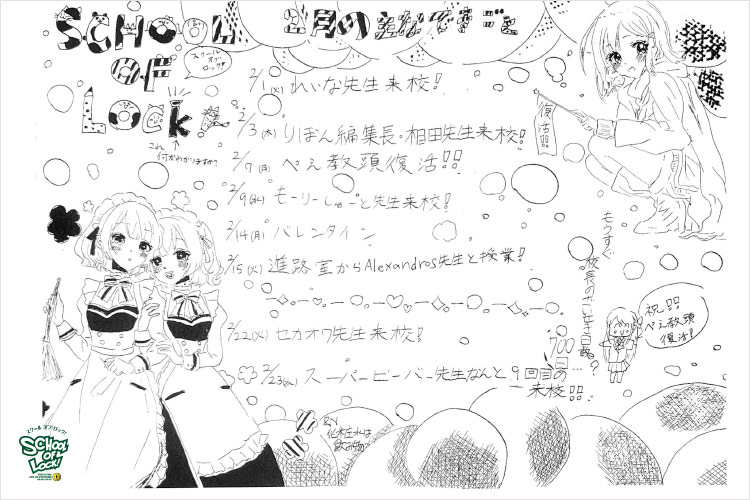 SCHOOL
OF
LOCK!
スクール
オブ
ロック!
2月の主なできごと
これ
何かわかりますか?
2/1(火) れいな先生来校!
2/3(木) りぼん編集長・相田先生来校!
2/7(月) ぺえ教頭復活!!
2/9(水) モーリーしゅーと先生来校!
2/14(月) バレンタイン
2/15(火) 進路室からAlexandros先生と授業!
2/22(火) セカオワ先生来校!
2/23(水) スーパービーバー先生なんと9回目の
来校!!
復活!!
もうすぐ
校長の
700日…?
祝!!
ぺえ教頭
復活!
化粧水は
飲み物
スクール オブ ロック!
SCHOOL
OF
LOCK!